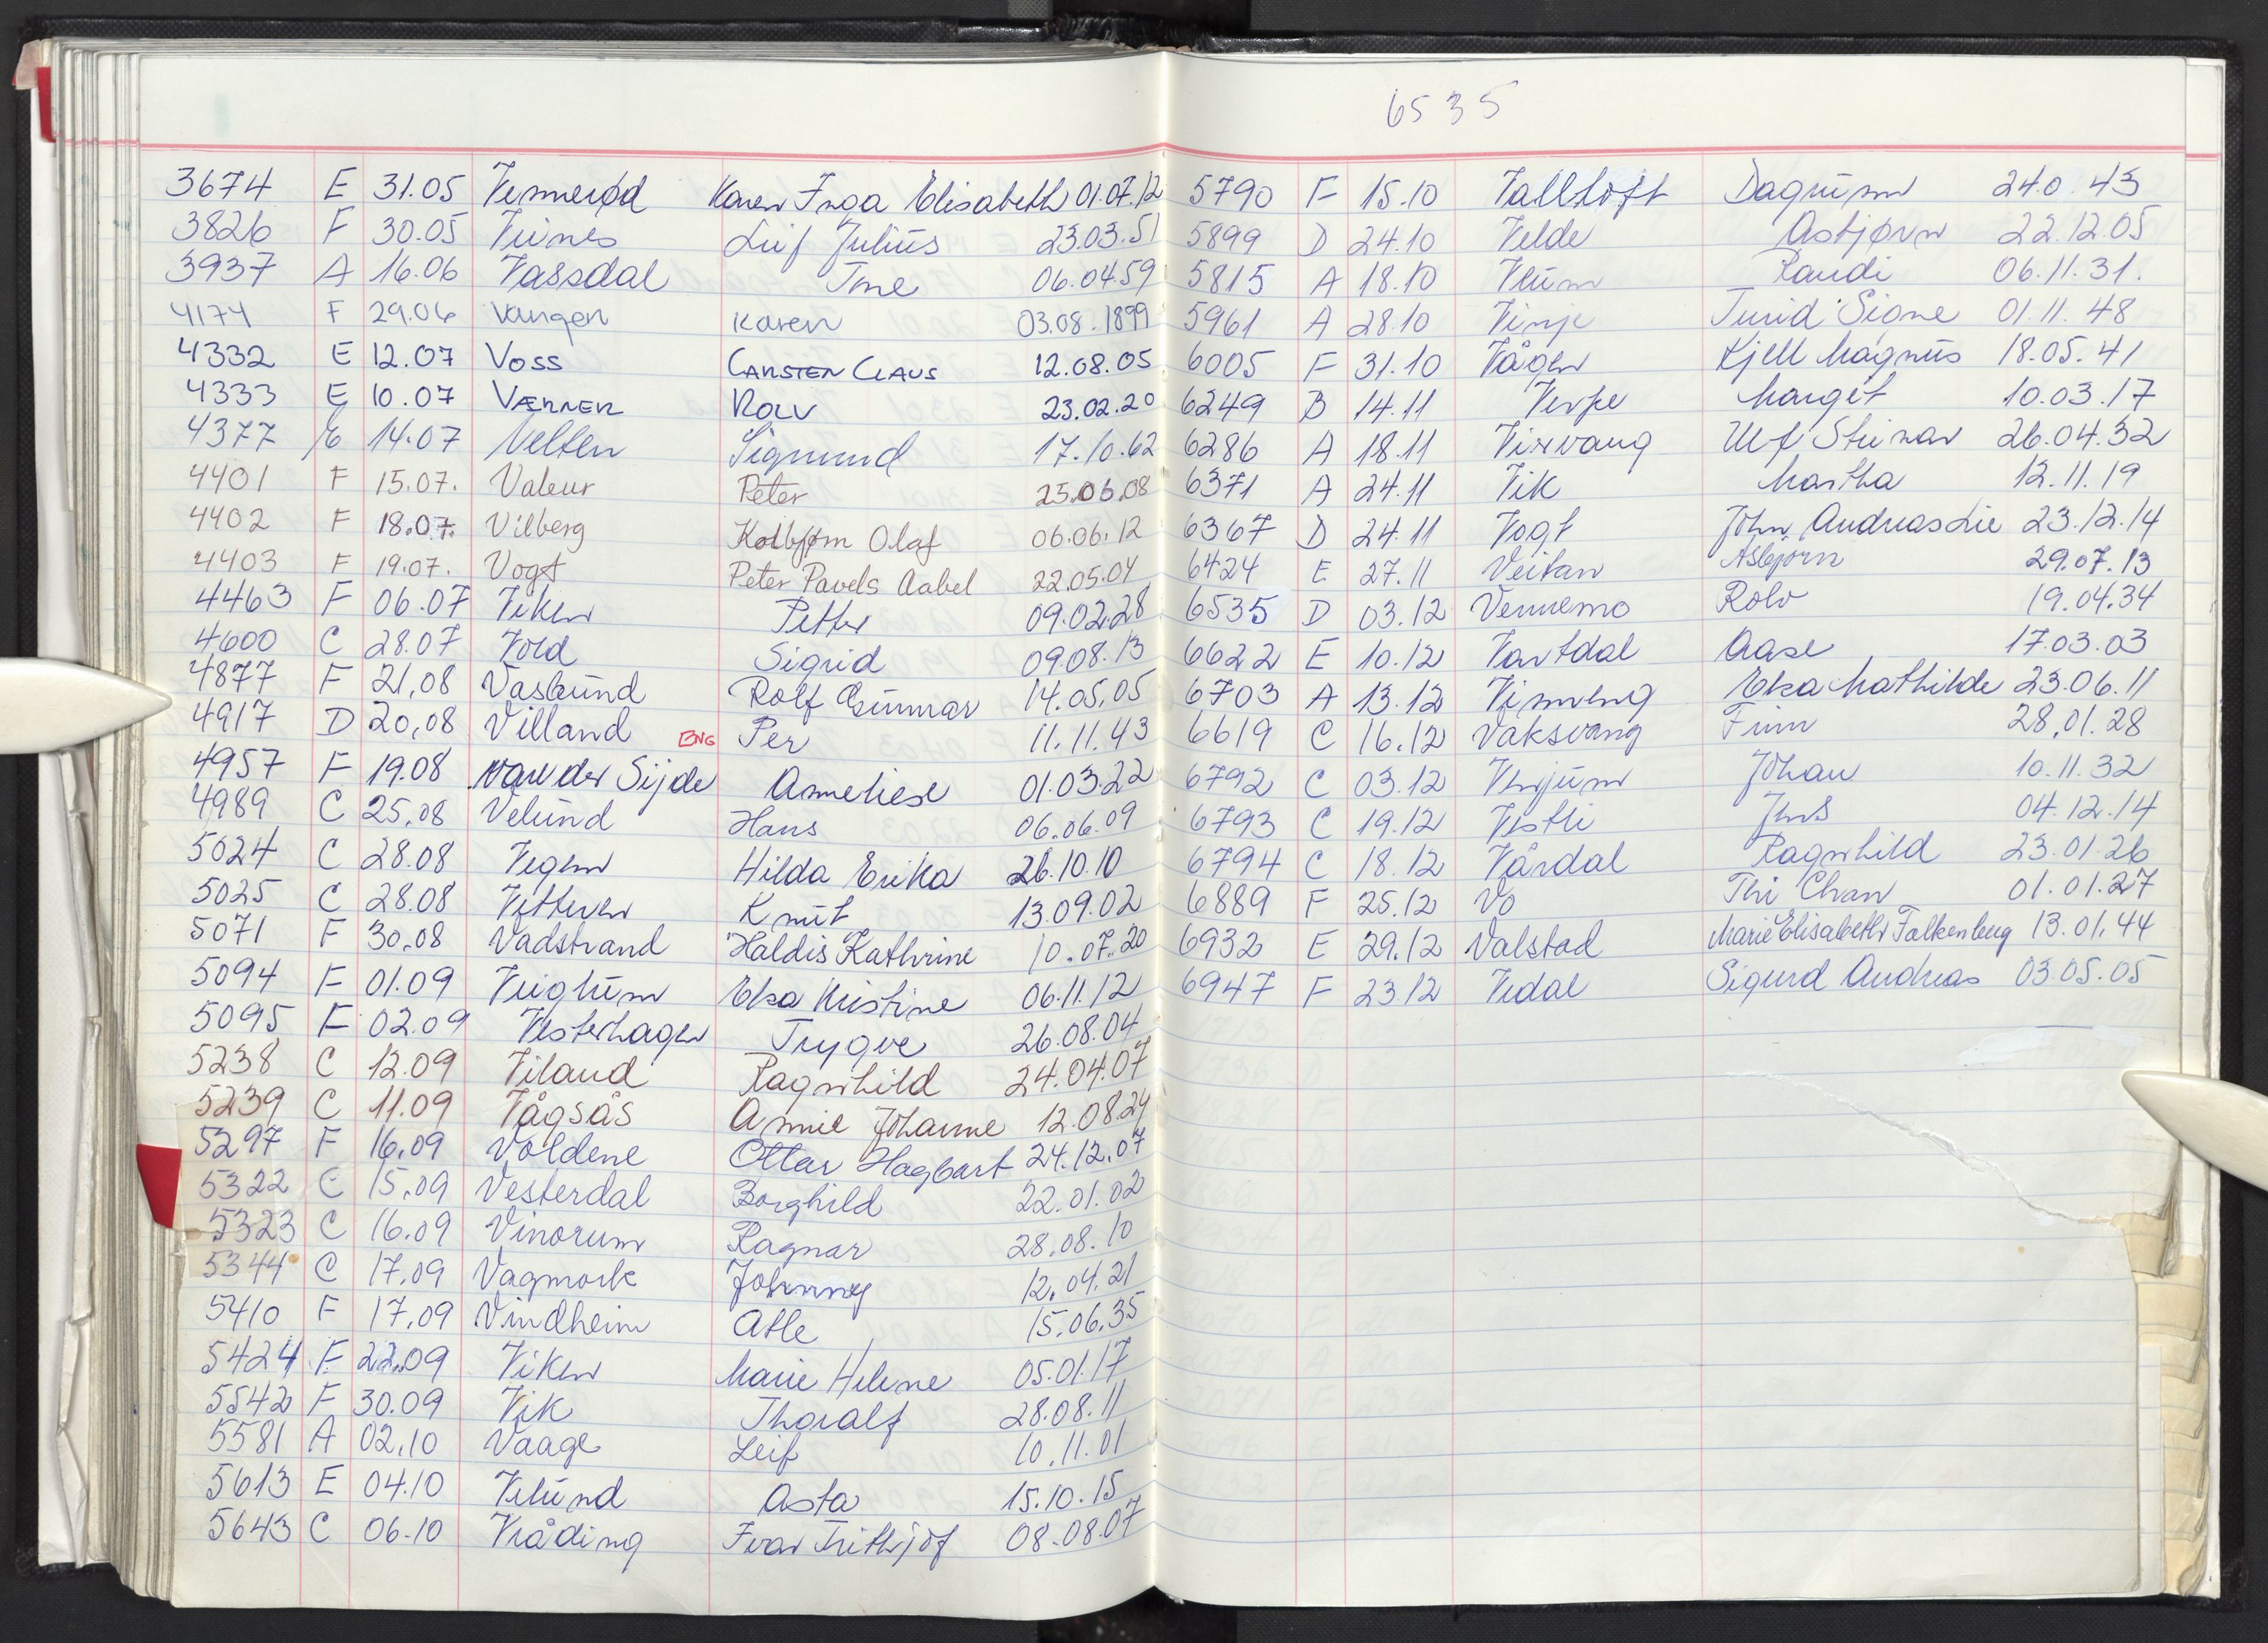 3674 E 31.05 Vennerød Karen Inga Elisabeth 01.07.12
3826 F 30.05 Vines Leif Julius 23.03.51
3937 A 16.06 Vassdal Tine 06.04.59
4174 F 29.06 Vangen Karen 03.08.1899
4332 E 12.07 Voss CARSTEN CLAUS 12.08.05
4333 E 10.07 VÆRNER ROLV 23.02.20
4377 E 14.07 Velten Sigmund 17.10.62
4401 F 15.07. Valeur Peter 25.06.08
4402 F 18.07. Vilberg Kolbjørn Olaf 06.06.12
4403 F 19.07. Vogt Peter Pavels Aabel 22.05.04
4463 F 06.07 Viken Petter 09.02.28
4600 C 28.07 Vold Sigrid 09.08.13
4877 F 21,08 Vaslund Rolf Gunnar 14.05.05
4917 D 20,08 Villand BNG Per 11.11.43
4957 F 19.08 van der Sijde Anneliese 01.03.22
4989 C 25,08 Velund Hans 06.06.09
5024 C 28.08 Vegem Hilda Erika 26.10.10
5025 C 28.08 Vetteren Knut 13.09.02
5071 F 30.08 Vadstrand Haldis Kathrine 10.07.20
5094 F 01.09 Veiglum Elsa Kristine 06.11.12
5095 F 02.09 Vesterhagen Trygve 26.08.04
5238 C 12.09 Viland Ragnhild 24.04.07
5239 C 11.09 Vågsås Annie Johanne 12.08.24
5297 F 16.09 Voldene Ottar Hagbart 24.12.07
5322 C 15.09 Vesterdal Borghild 22.01.02
5323 C 16.09 Vinorum Ragnar 28.08.10
5344 C 17.09 Vagmork Johnny 12.04.21
5410 F 17.09 Vindheim Atle 15.06.35
5424 F 22.09 Viken Marie Helene 05.01.17
5542 F 30.09 Vik Thoralf 28.08.11
5581 A 02.10 Vaage Leif 10.11.01
5613 E 04.10 Velund Asta 15.10.15
5643 C 06.10 Vråding Ivar Frithjof 08.08.07
6535
5790 F 15.10 Valltoft Dagrunn 24.0 43
5899 D 24.10 Velde Asbjørn 22.12.05
5815 A 18.10 Randi 06.11.31.
5961 A 28.10 Vinje Turid Signe 01.11.48
6005 F 31.10 Vågen Kjell Magnus 18.05.41
6249 B 14.11 Verpe Margit 10.03.17
6286 A 18.11 Virvang Ulf Steinar 26.04.32
6371 A 24.11 Vik Martha 12.11.19
6367 D 24.11 Vogt John Andreas Lie 23.12.14
6424 E 27.11 Veitan Asbjørn 29.07.13
6535 D 03.12 Vennemo Rolv 19.04.34
6622 E 10.12 Vartdal Aase 17.03.03
6703 A 13.12 Elsa Mathilde 23.06.11
6619 C 16.12 Vaksvang Finn 28.01.28
6792 C 03.12 Johan 10.11.32
6793 C 19.12 Vestli Jens 04.12.14
6794 C 18.12 Vårdal Ragnhild 23.01.26
6889 F 25.12 Vo Thi Chan 01.01.27
6932 E 29.12 Valstad Marie Elisabeth Falkenberg 13.01.44
6947 F 23.12 Vedal Sigurd Andreas 03.05.05